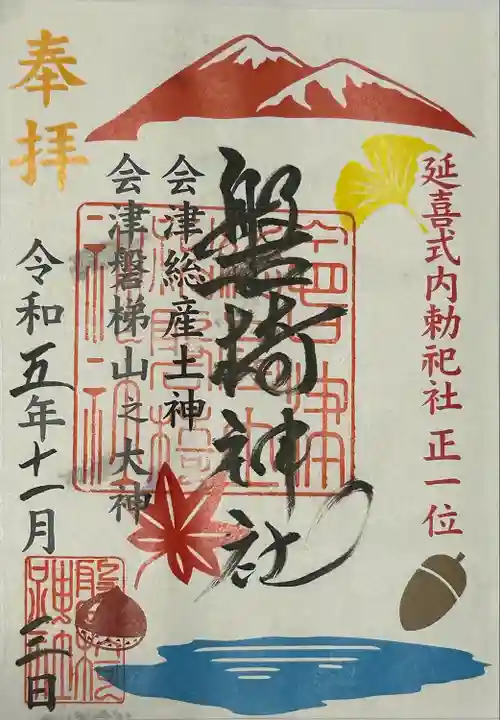 延喜式内勅祀社 正一位
磐椅神社
会津総産土神
会津磐梯山之大神
奉拝
令和五年十一月
三日